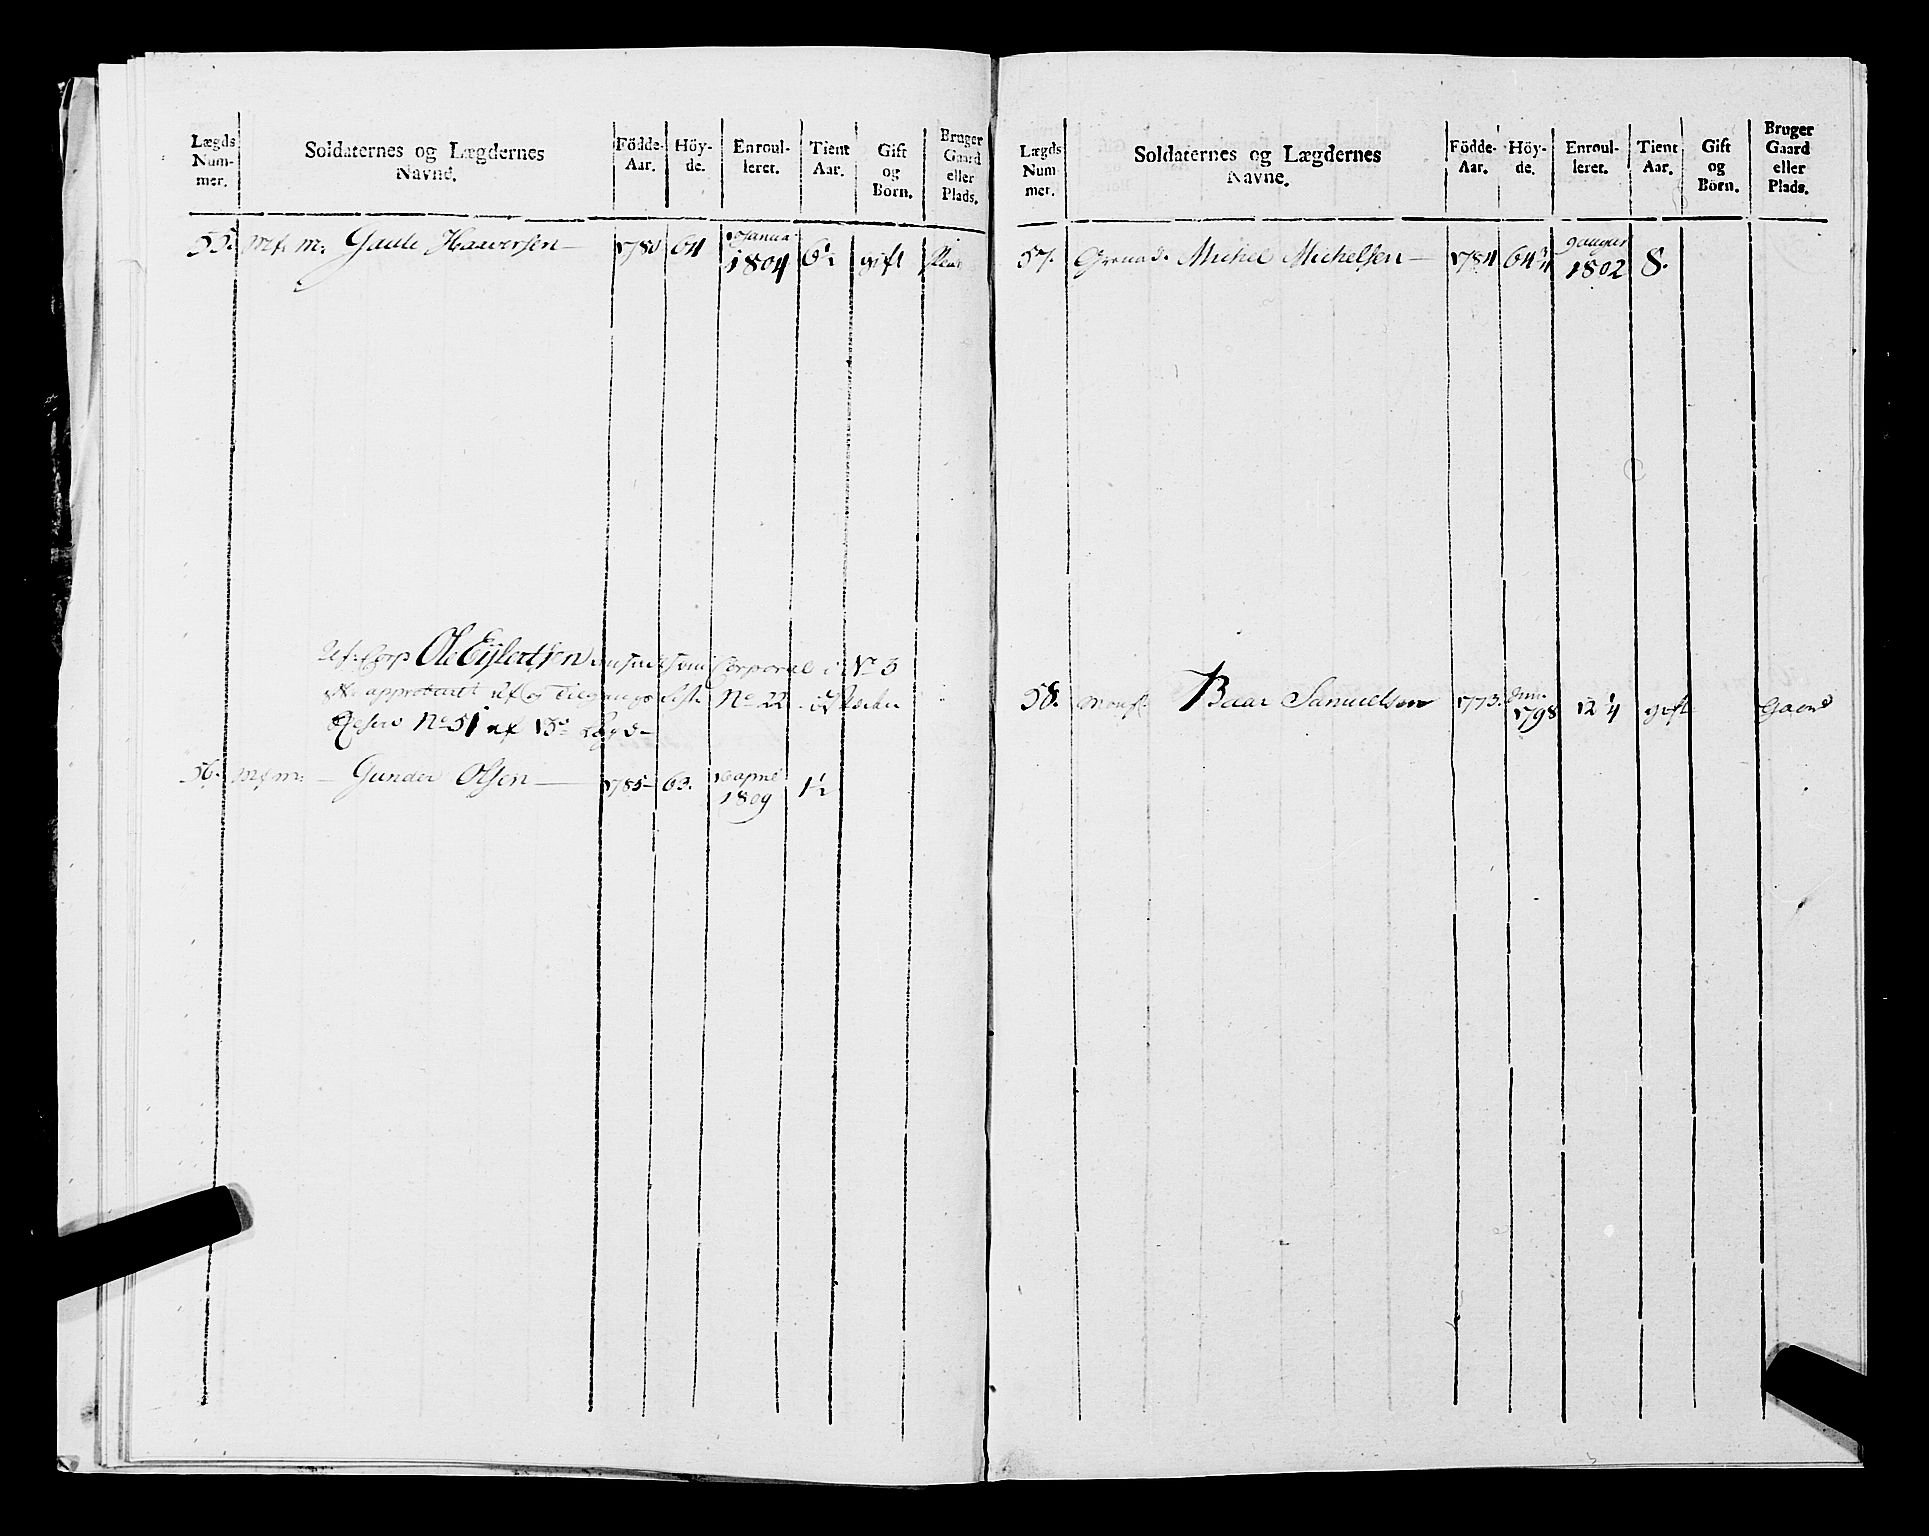 Lægds Num- mer.
Soldaternes og Lægdernes Navne.
Födde- Aar.
Höy- de.
Enroul- leret.
Tient Aar.
Gift og Börn.
Bruger Gaard eller Plads.
55. Mf. m: Gaute Haaversen — 1780 64 Januar 1804 6½ gift
Uf: Corp Ole Eylertsen Corporal i No 3
approberet af og Tilgangs Liste No 22
Reserv No 51 af 13de Lægd —
56. Mf m: — Gunder Olsen — 1785 — 63. april 1809 1½
Lægds Num mer.
Soldaternes og Lægdernes Navne.
Födde- Aar.
Höy- de.
Enroul- leret.
Tient Aar.
Gift og Börn.
Bruger Gaard eller Plads.
57. Grenad. Michel Michelsen — 1784 64¾ august 1802 8.
58. Mousq. Baar Samuelsen 1773. 1798 12¼ gift Gaard